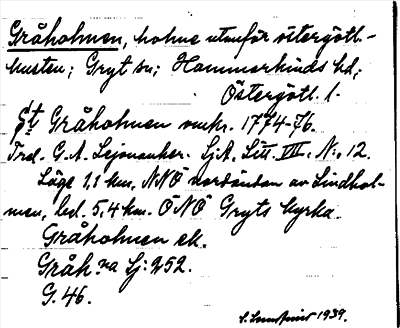 Gråholmen, holme utanför östergötl.-
kusten; Gryt sn; Hammarkinds hd;
Östergötl. l.
St Gråholmen omkr. 1774-76.
Trol. G. A. Lejonanker. SjA, Litt. VIII, N:o 12.
Läge 1,1 km. NNÖ nordändan av Lindhol-
men, bel. 5,4 km. ÖNÖ Gryts kyrka.
Gråholmen ek.
Gråh.na Sj: 252.
G. 46.
1939.